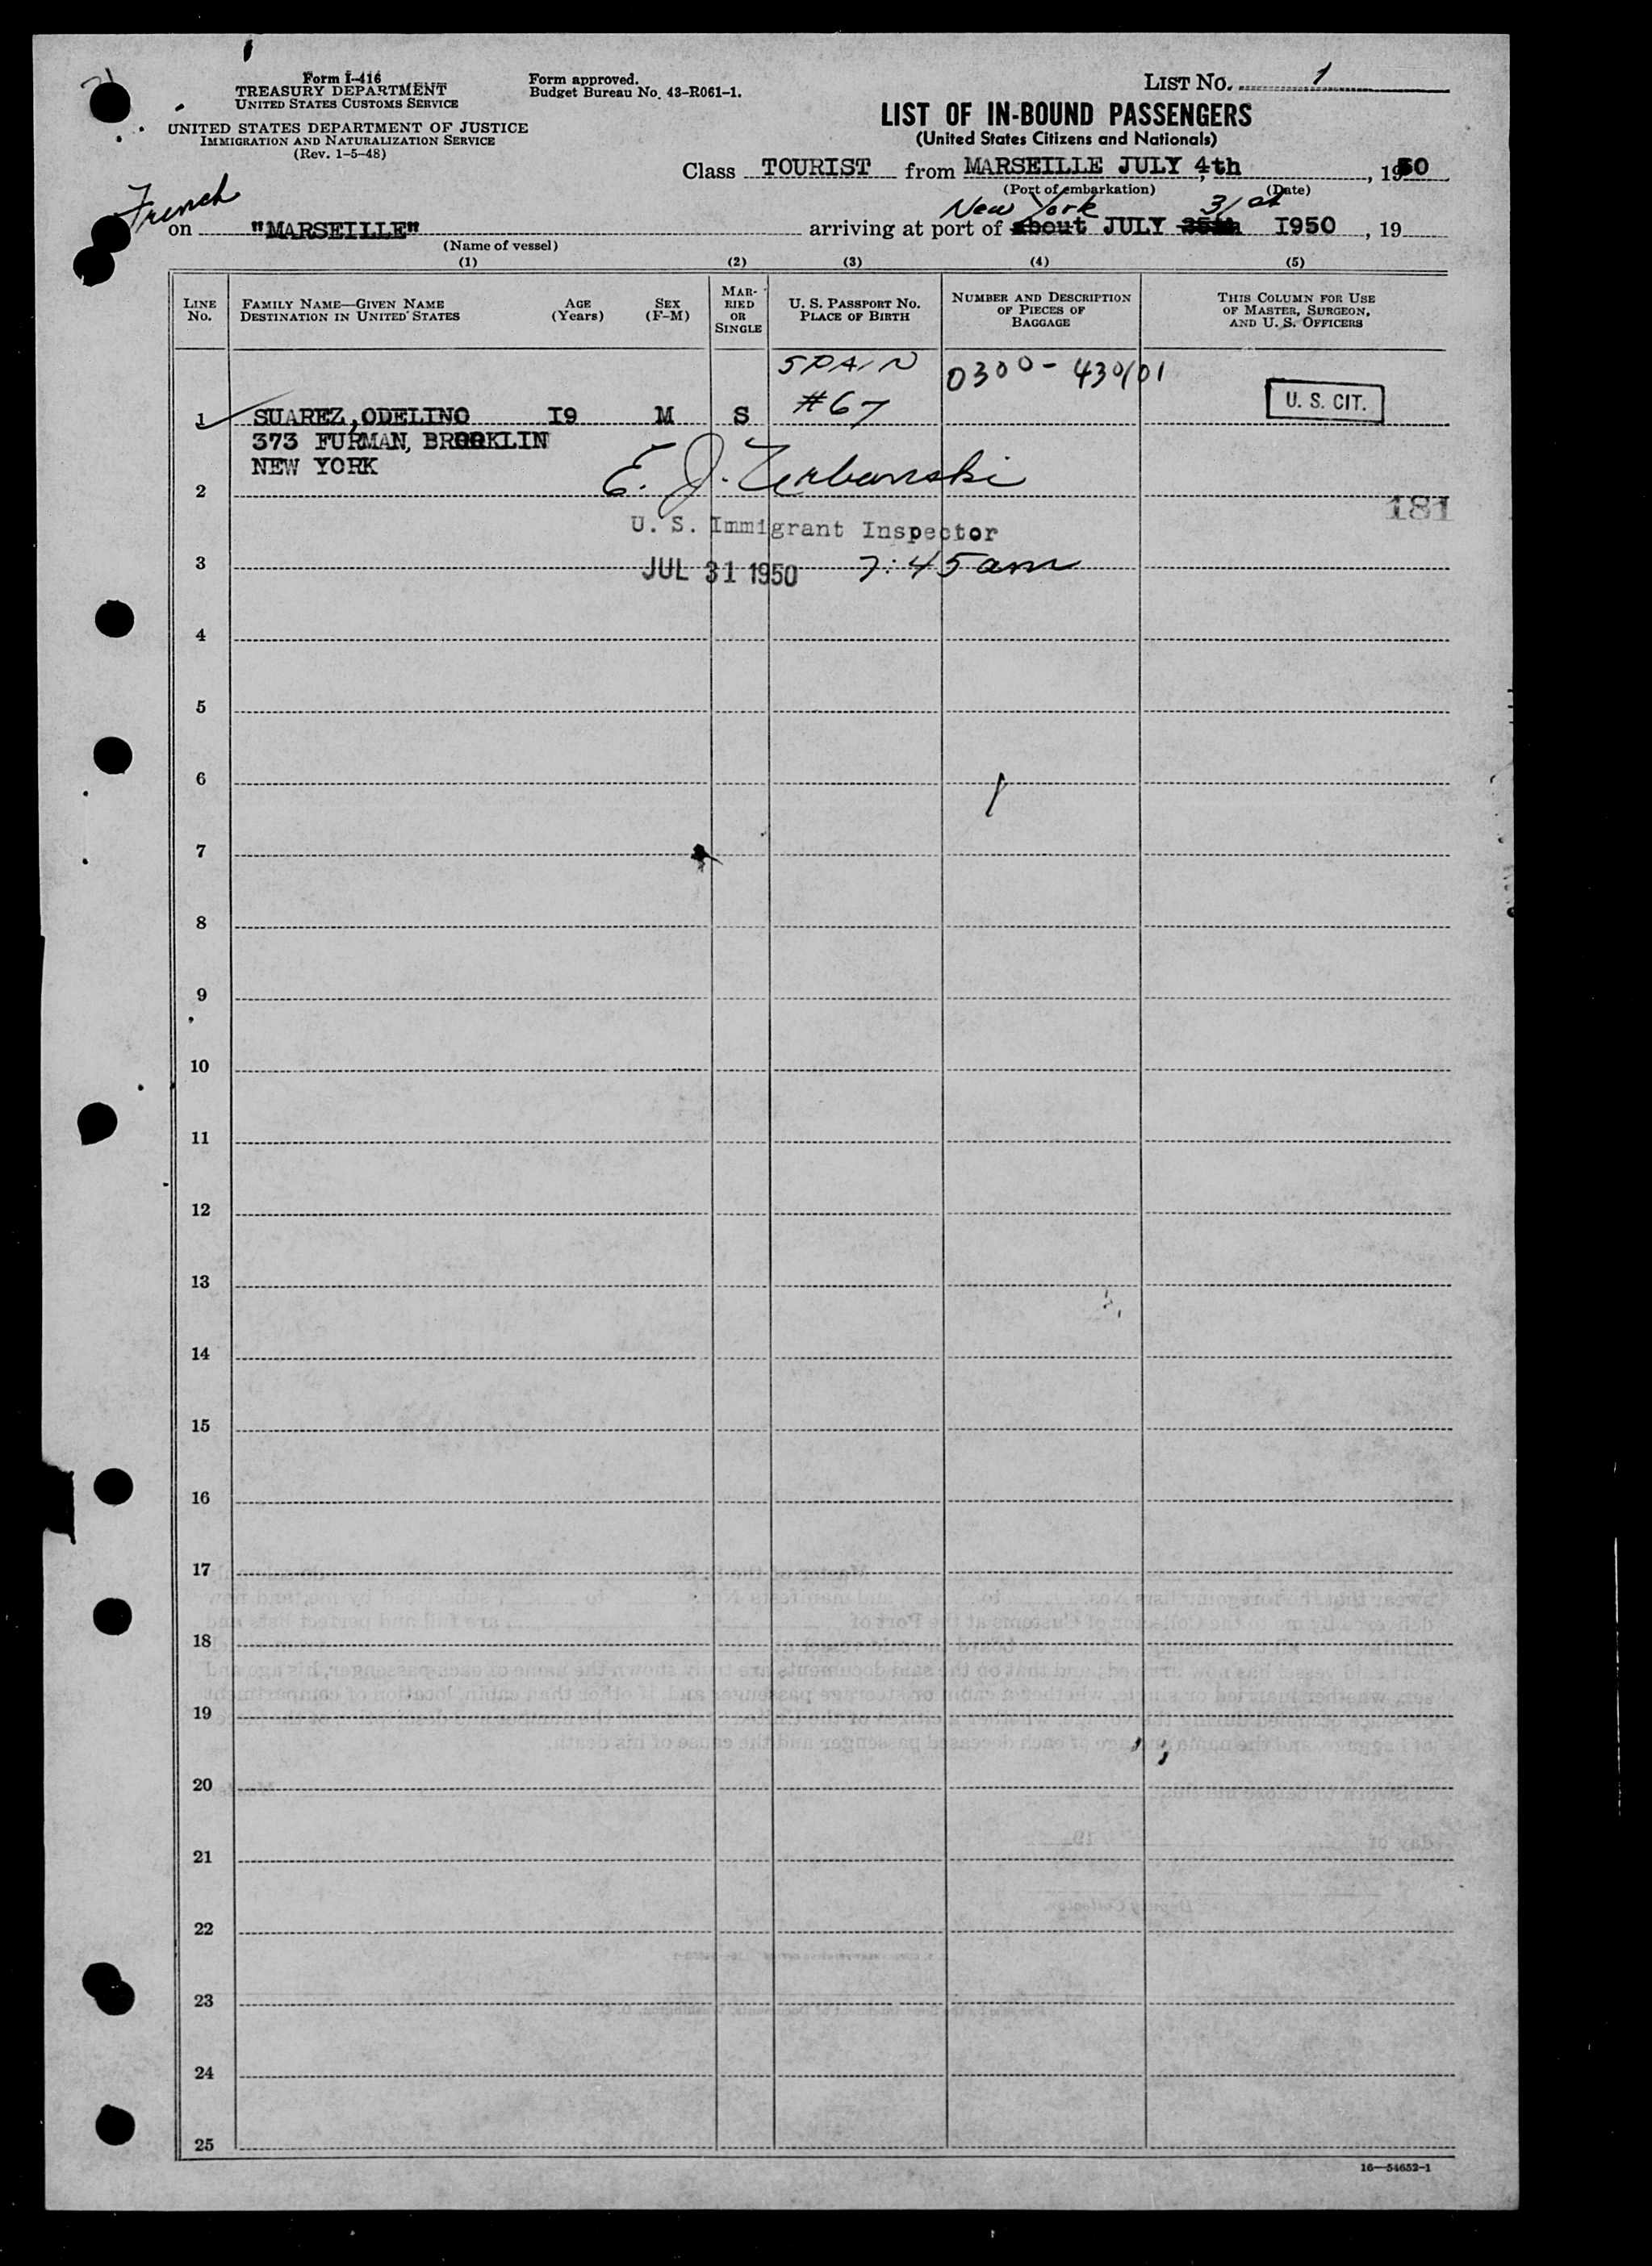 Form I-416
TREASURY DEPARTMENT
UNITED STATES CUSTOMS SERVICE
UNITED STATES DEPARTMENT OF JUSTICE
IMMIGRATION AND NATURALIZATION SERVICE
(Rev. 1-5-48)
Form approved.
Budget Bureau No. 43-R061-1.
LIST NO. 1
LIST OF IN-BOUND PASSENGERS
(United States Citizens and Nationals)
Class TOURIST from MARSEILLE JULY 4th, 1950
(Port of embarkation) (Date)
French
New York 31st
on "MARSEILLE" arriving at port of about JULY 25th I950, 19
(Name of vessel)
(1) (2) (3) (4) (5)
LINE No.
FAMILY NAME—GIVEN NAME
DESTINATION IN UNITED STATES
AGE (Years)
SEX (F-M)
MARRIED OR SINGLE
U. S. PASSPORT NO.
PLACE OF BIRTH
NUMBER AND DESCRIPTION OF PIECES OF BAGGAGE
THIS COLUMN FOR USE OF MASTER, SURGEON, AND U. S. OFFICERS
SPAIN 0300-430/01
1 SUAREZ,ODELINO I9 M S #67 U. S. CIT.
373 FURMAN, BROOKLIN
NEW YORK
E. J. Zerbanski
2
181
U. S. Immigrant Inspector
3 JUL 31 1950 7:45am
4
5
6
7
8
9
10
11
12
13
14
15
16
17
18
19
20
21
22
23
24
25
16—54652-1